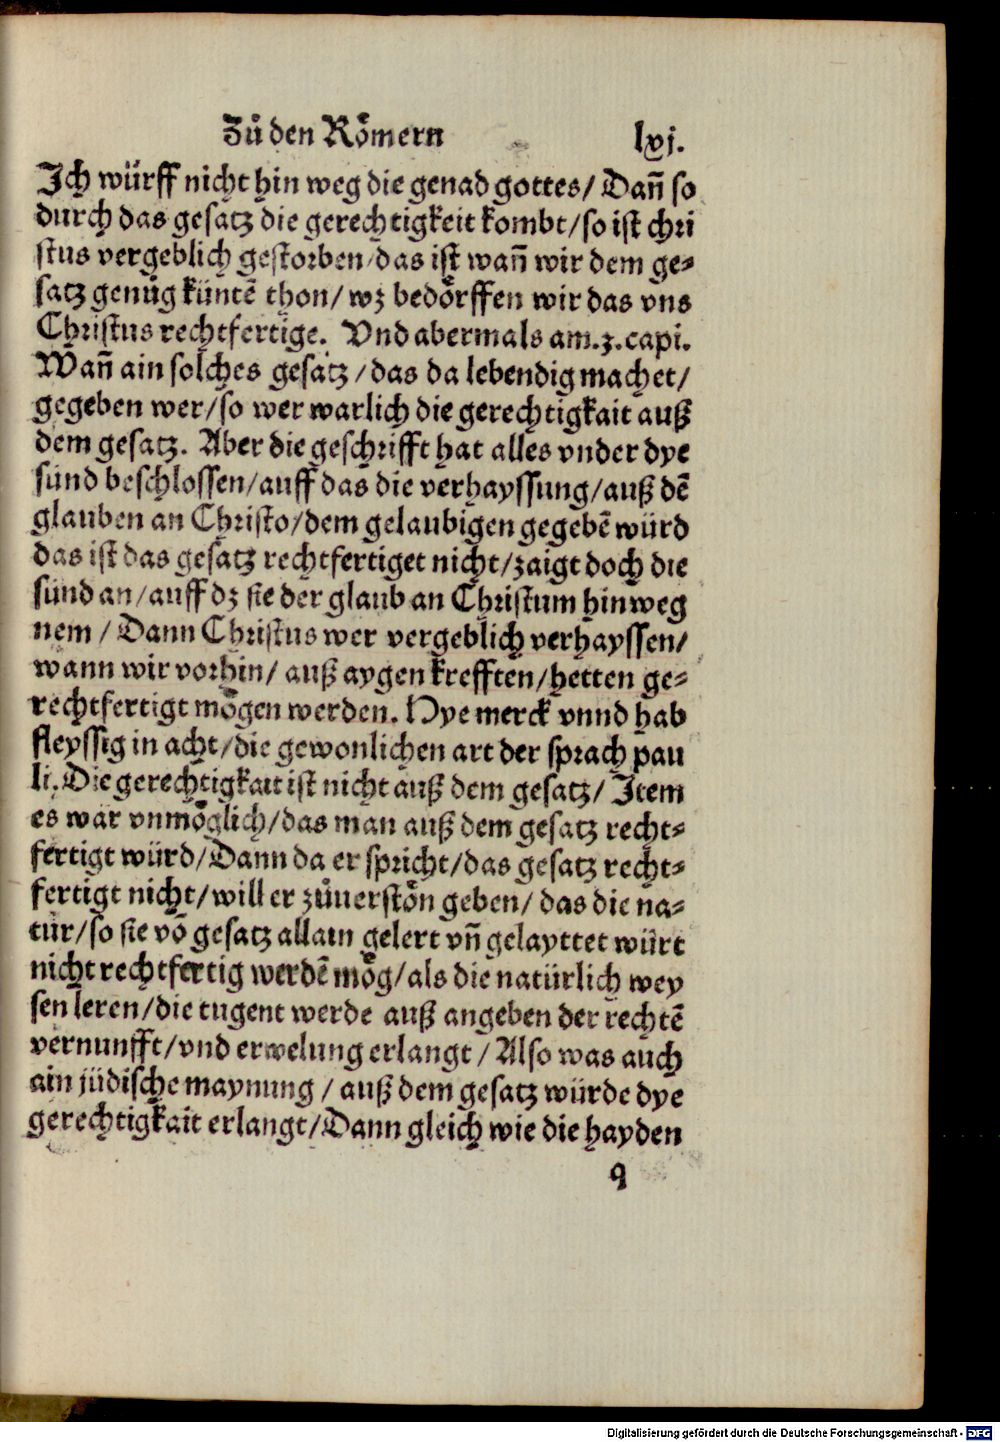 Zů den Rŏmern lxj.
Ich würff nicht hin weg die genad gottes/ Dañ so
durch das gesatz die gerechtigkeit kombt/so ist chri
stus vergeblich gestorben/das ist wañ wir dem ge⸗
satz genůg küntē thon/wz bedŏrffen wir das vns
Christus rechtfertige. Vnd abermals am.3.capi.
Wañ ain solches gesatz/das da lebendig machet/
gegeben wer/so wer warlich die gerechtigkait auß
dem gesatz. Aber die geschrifft hat alles vnder dye
sünd beschlossen/auff das die verhayssung/auß dē
glauben an Christo/dem gelaubigen gegebē würd
das ist das gesatz rechtfertiget nicht/zaigt doch die
sünd an/auff dz sie der glaub an Christum hinweg
nem/ Dann Christus wer vergeblich verhayssen/
wann wir vorhin/ auß aygen krefften/hetten ge⸗
rechtfertigt mŏgen werden. Hye merck vnnd hab
fleyssig in acht/die gewonlichen art der sprach pau
li. Die gerechtigkait ist nicht auß dem gesatz/ Item
es war vnmŏglich/das man auß dem gesatz recht⸗
fertigt würd/Dann da er spricht/das gesatz recht⸗
fertigt nicht/will er zůuerstŏn geben/ das die na⸗
tür/so sie vō gesatz allain gelert vñ gelayttet würt
nicht rechtfertig werdē mŏg/als die natürlich wey
sen leren/die tugent werde auß angeben der rechtē
vernunfft/vnd erwelung erlangt/Also was auch
ain jüdische maynung/ auß dem gesatz würde dye
gerechtigkait erlangt/Dann gleich wie die hayden
q
Digitalisierung gefördert durch die Deutsche Forschungsgemeinschaft - DFG